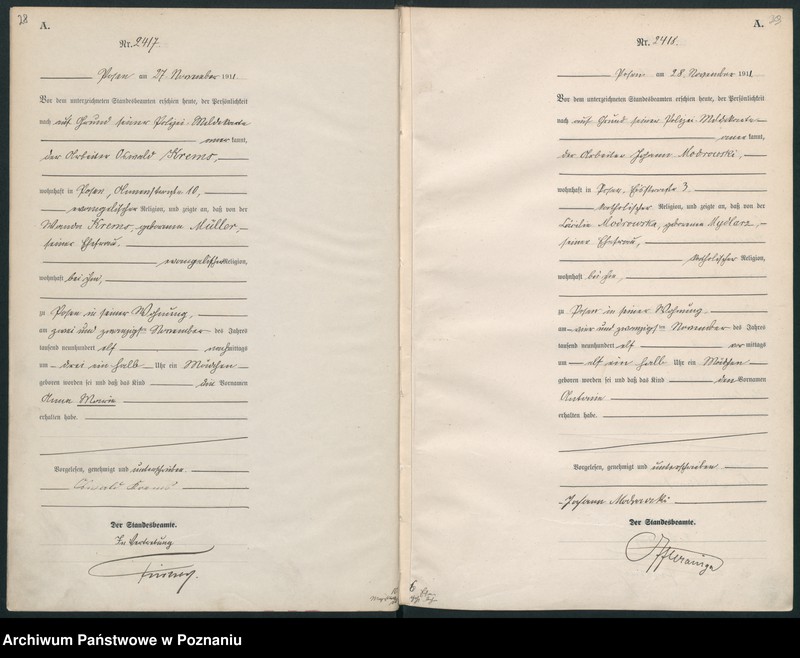 28
A.
Nr. 2417.
Posen am 27. November 1911
Vor dem unterzeichneten Standesbeamten erschien heute, der Persönlichkeit
nach auf Grund seiner Polizei-Meldekarte
kannt,
der Arbeiter Oswald Krems,
wohnhaft in Posen, 10,
evangelischer Religion, und zeigte an, daß von der
Wanda Krems, geborenen Müller,
seiner Ehefrau,
evangelischer Religion,
wohnhaft bei ihm,
zu Posen in seiner Wohnung,
am zwei und zwanzigsten November des Jahres
tausend neunhundert elf nachmittags
um drei ein halb Uhr ein Mädchen
geboren worden sei und daß das Kind die Vornamen
Anna Maria
erhalten habe.
Vorgelesen, genehmigt und unterschrieben
Oswald Krems
Der Standesbeamte.
In Vertretung
A.
Nr. 2418.
Posen am 28. November 1911
Vor dem unterzeichneten Standesbeamten erschien heute, der Persönlichkeit
nach auf Grund seiner Polizei-Meldekarte
kannt,
der Arbeiter Johann Modrowski,
wohnhaft in Posen, 3
katholischer Religion, und zeigte an, daß von der
Modrowska, geborenen Mydlarz,
seiner Ehefrau,
katholischer Religion,
wohnhaft bei ihm,
zu Posen in seiner Wohnung
am vier und zwanzigsten November des Jahres
tausend neunhundert elf vormittags
um elf ein halb Uhr ein Mädchen
geboren worden sei und daß das Kind den Vornamen
Antonie
erhalten habe.
Vorgelesen, genehmigt und unterschrieben
Johann Modrowski
Der Standesbeamte.
6
Archiwum Państwowe w Poznaniu